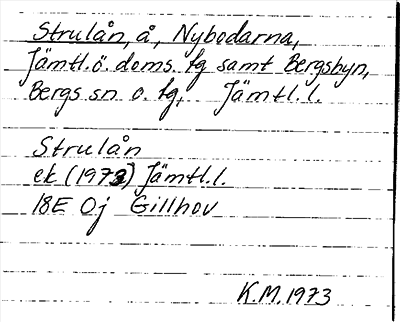 Strulån, å, Nybodarna,
Jämtl.ö. doms. fg samt Bergsbyn,
Bergs sn o. fg, Jämtl.l.
Strulån
ek (1973) Jämtl.l.
18E 0j Gillhov
K.M.1973